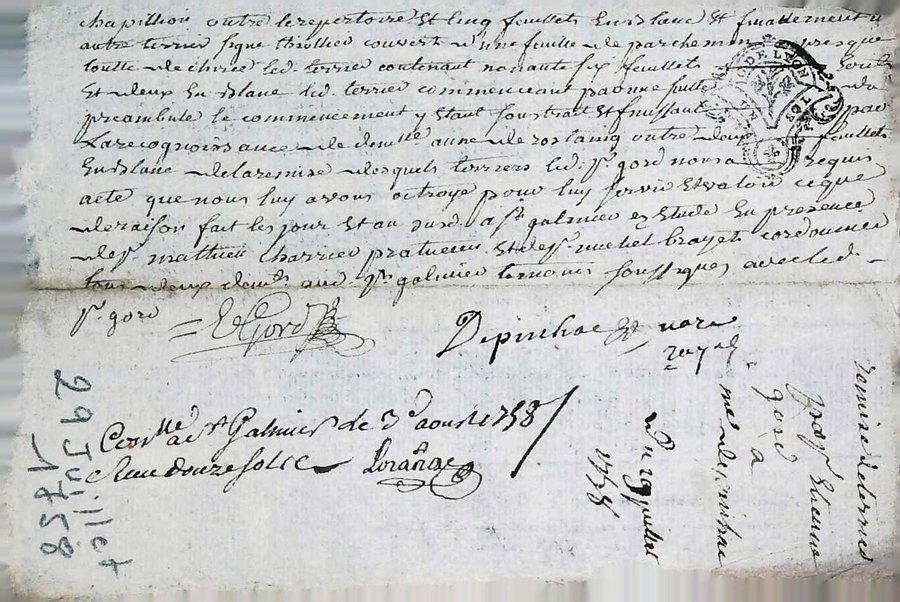 chapillion outre le repertoire et cinq feuillets en blanc et finallement
autre terrier signe couvert d'une feuille de parchemin presque
toutte dechiree led. terrier contenant nonante six feuillets
et deux en blanc led. terrier commenceant par
preambule le commencement y etant soustrait et finissant par
La recognoissance de anne de outre deux feuillets
en blanc de la remise desquels terriers led. sr. gord nous a requis
acte que nous luy avons octroye pour luy servir et valoir ce que
de raison fait les jour et an susd. a st. galmier en etude en presence
de sr mathieu charrier praticien et de sr michel brayet cordonnier
tous deux demts. aud. st. galmier temoins soussignes avec led.
sr. gord
DE LYON
E Gord
Depinhac
not.
royal
Con.lle a st Galmier le 3e aoust 1758
Reçu douze sols
29 Juillet
1758
remise de terriers
pr sr Etienne
gord
a
me depinhac
Du 29 juillet
1758